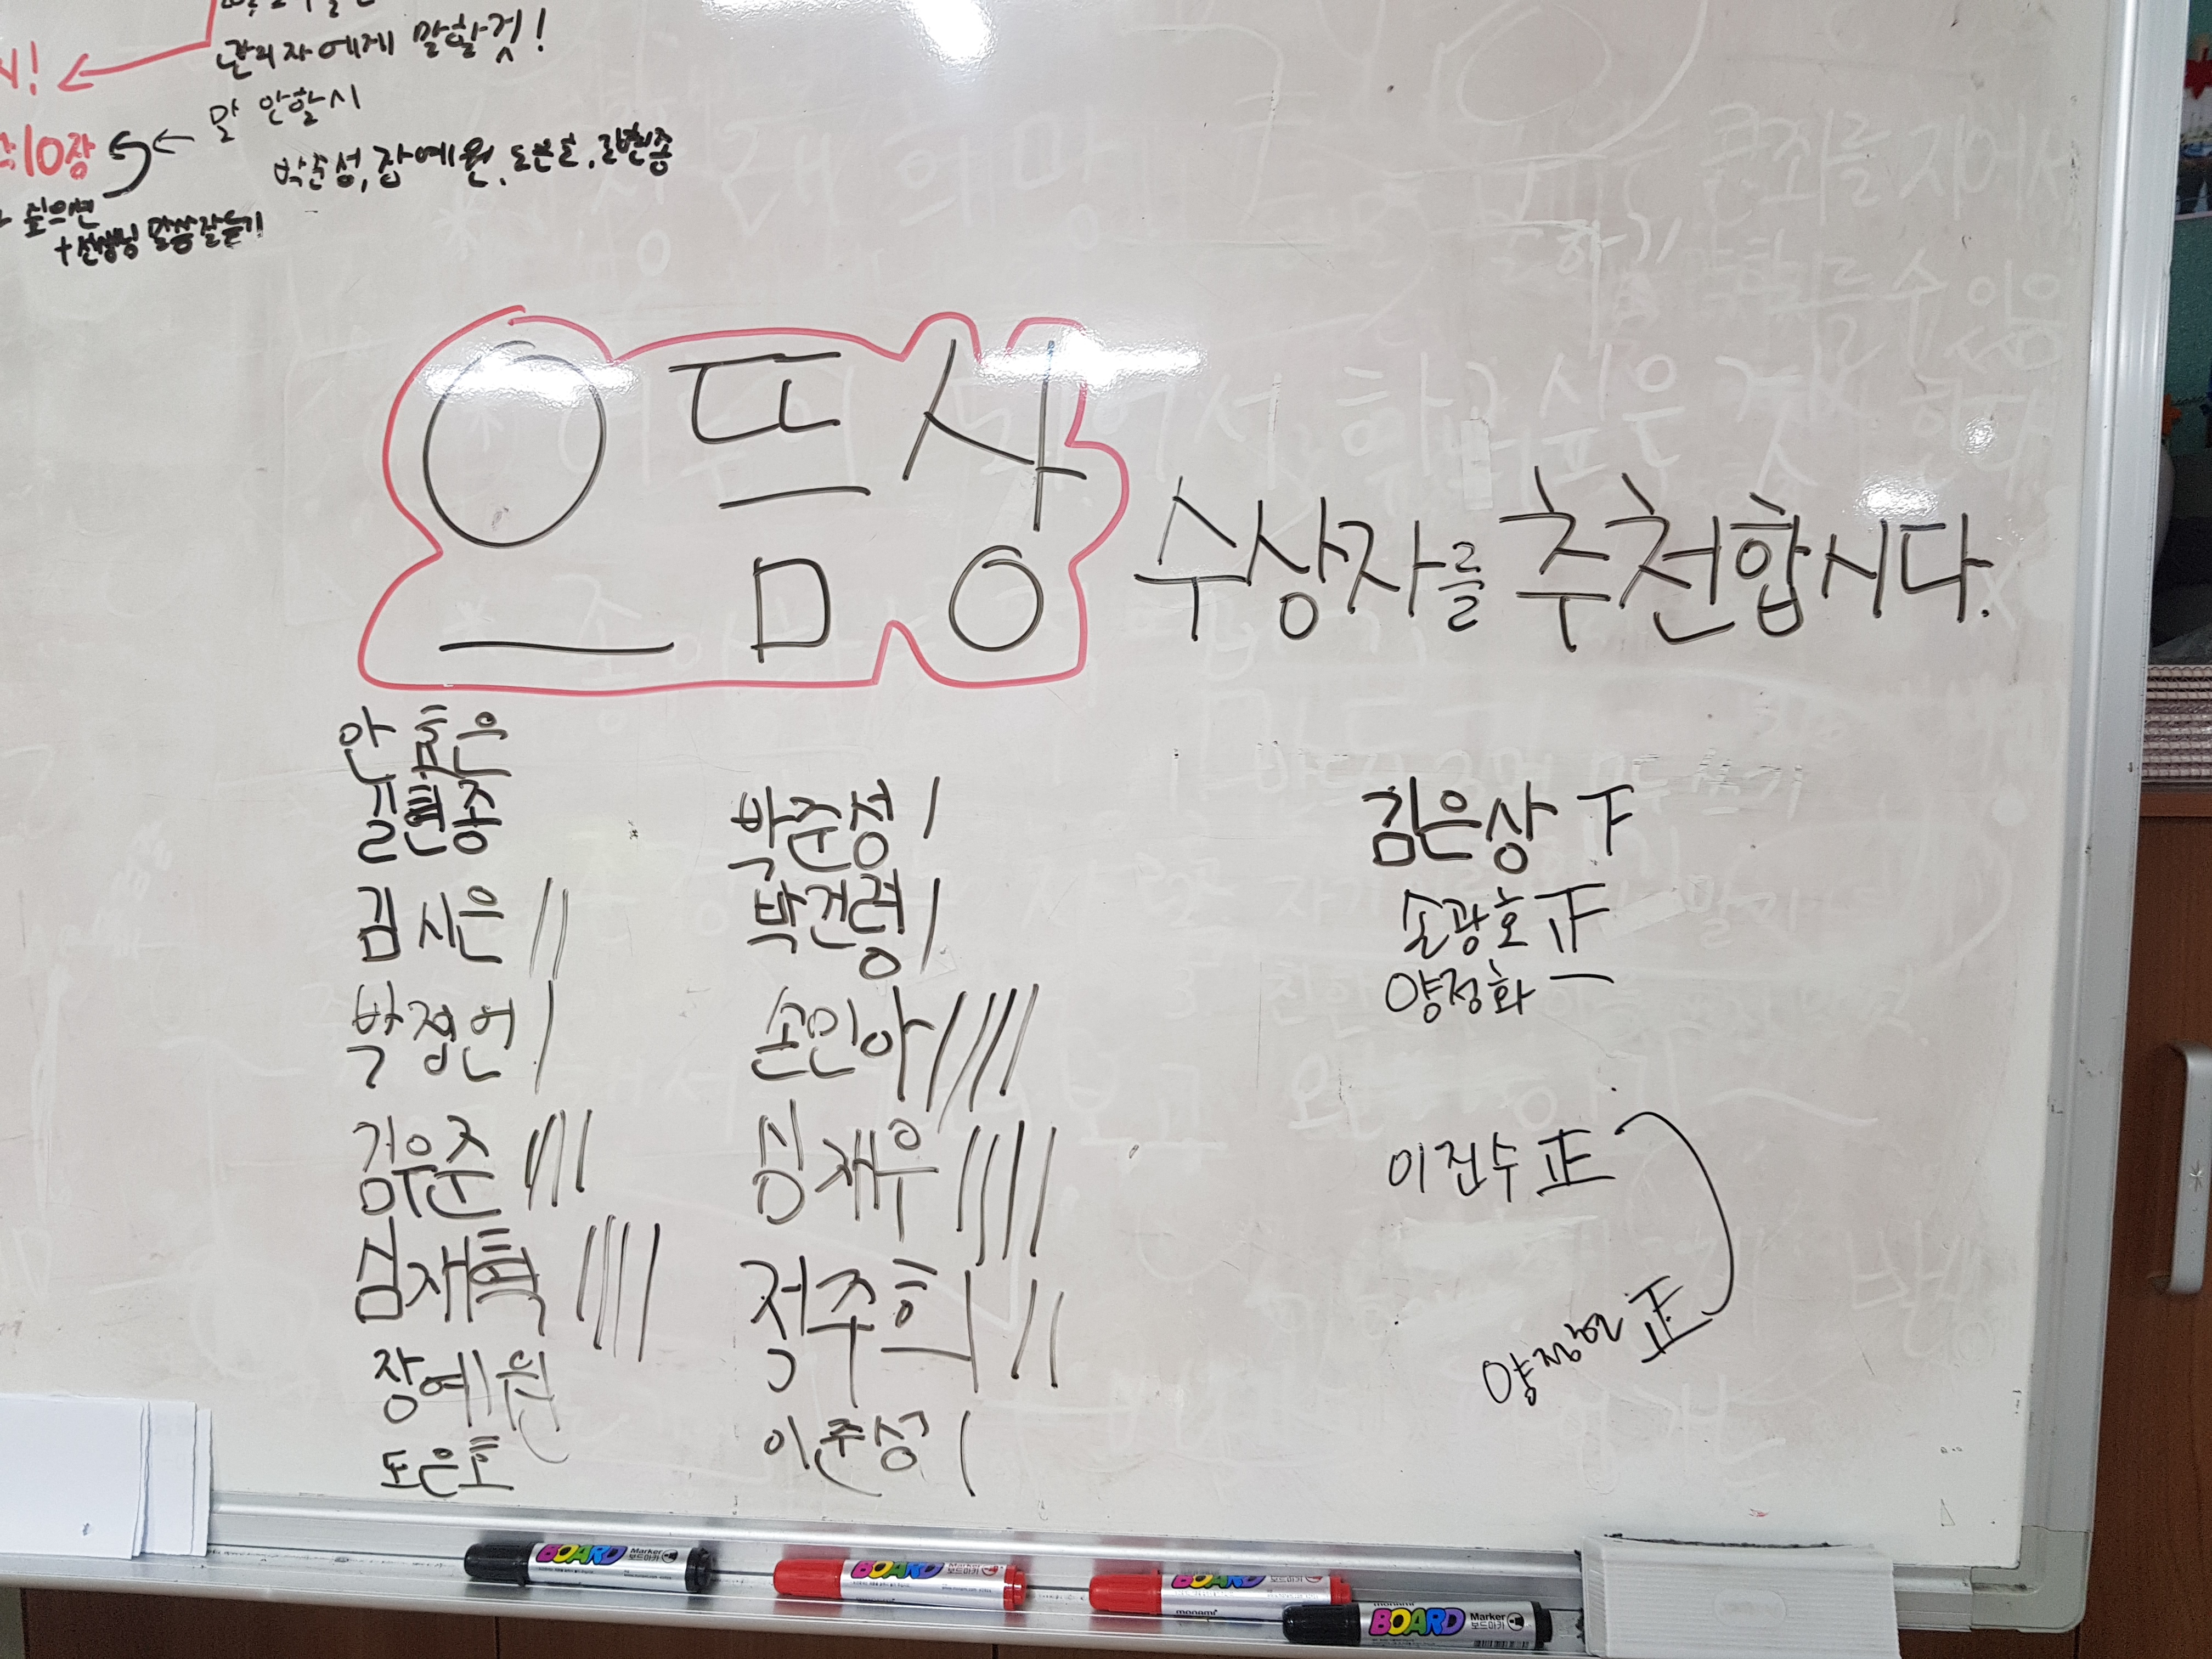 관리자에게 말할것!
시!
말 안할시
10장
박준성, 장예원, 도은호, 길현종
싶으면
+선생님 말씀잘듣기
으뜸상
수상자를 추천합시다.
안흠은
길현종
김시은 //
박정언 /
김우준 ///
심재혁 ////
장예원
도은호
박준성 /
박건령 /
손민아 ////
심재우 ////
정주희 //
이준성 /
김은상 下
손광호 正
양정화 一
이진수 正
正
BOARD Marker 보드마카
BOARD Marker 보드마카
BOARD Marker 보드마카
monami
monami
BOARD Marker 보드마카